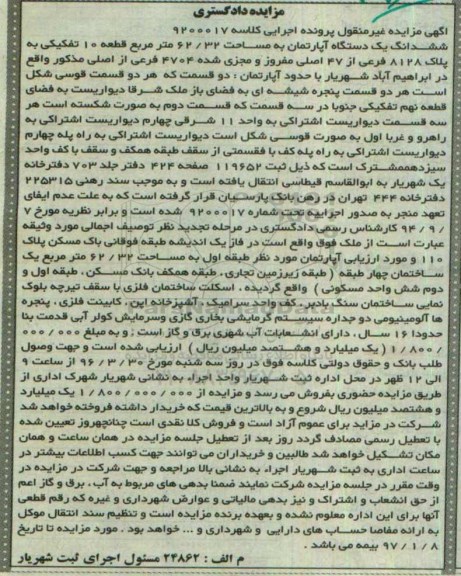 مزایده دادگستری
آگهی مزایده غیرمنقول پرونده اجرایی کلاسه ۹۲۰۰۰۱۷
ششدانگ یک دستگاه آپارتمان به مساحت ۶۲/۳۲ متر مربع قطعه ۱۰ تفکیکی به
پلاک ۸۱۲۸ فرعی از ۴۷ اصلی مفروز و مجزی شده ۴۷۰۴ فرعی از اصلی مذکور واقع
در ابراهیم آباد شهریار با حدود آپارتمان : دو قسمت که هر دو قسمت قوسی شکل
است هر دو قسمت پنجره شیشه ای به فضای باز ملک شرقا دیواریست به فضای
قطعه نهم تفکیکی جنوبا در سه قسمت که قسمت دوم به صورت شکسته است هر
سه قسمت دیواریست اشتراکی به واحد ۱۱ شرقی چهارم دیواریست اشتراکی به
راهرو و غربا اول به صورت قوسی شکل است دیواریست اشتراکی به راه پله چهارم
دیواریست اشتراکی به راه پله کف با قسمتی از سقف طبقه همکف و سقف با کف واحد
سیزدهم مشترک است که ذیل ثبت ۱۱۹۶۵۲ صفحه ۴۲۴ دفتر جلد ۷۰۳ دفترخانه
یک شهریار به ابوالقاسم قیطاسی انتقال یافته است و به موجب سند رهنی ۲۲۵۳۱۵
دفترخانه ۴۴۴ تهران در رهن بانک پارسیان قرار گرفته است که به علت عدم ایفای
تعهد منجر به صدور اجراییه تحت شماره ۹۲۰۰۰۱۷ شده است و برابر نظریه مورخ ۷
/ ۹ / ۹۴ کارشناس رسمی دادگستری در مرحله تجدید نظر توصیف اجمالی مورد وثیقه
عبارت است از ملک فوق واقع است در فاز یک اندیشه طبقه فوقانی باک مسکن پلاک
۱۱۰ و مورد ارزیابی آپارتمان مورد نظر طبقه اول به مساحت ۶۲/۳۲ متر مربع یک
ساختمان چهار طبقه ( طبقه زیرزمین تجاری . طبقه همکف بانک مسکن . طبقه اول و
دوم شش واحد مسکونی ) واقع گردیده . اسکلت ساختمان فلزی با سقف تیرچه بلوک
نمایی ساختمان سنگ بادبر . کف واحد سرامیک . آشپزخانه اپن . کابینت فلزی . پنجره
ها آلومینیومی دو جداره سیستم گرمایشی بخاری گازی وسرمایش کولر آبی قدمت بنا
حدودا ۱۶ سال . دارای انشعابات آب شهری برق و گاز است . و به مبلغ ۰۰۰/۰۰۰
/۱/۸۰۰ ( یک میلیارد و هشتصد میلیون ریال ) ارزیابی شده است و جهت وصول
طلب بانک و حقوق دولتی کلاسه فوق در روز سه شنبه مورخ ۹۶/۳/۳۰ از ساعت ۹
الی ۱۲ ظهر در محل اداره ثبت شهریار واحد اجراء به نشانی شهریار شهرک اداری از
طریق مزایده حضوری بفروش می رسد و مزایده از ۱/۸۰۰/۰۰۰/۰۰۰ یک میلیارد
و هشتصد میلیون ریال شروع و به بالاترین قیمت که خریدار داشته فروخته خواهد شد
شرکت در مزاید برای عموم آزاد است و فروش کلا نقدی است چنانچهروز تعیین شده
با تعطیل رسمی مصادف گردد روز بعد از تعطیل جلسه مزایده در همان ساعت و همان
مکان تشکیل خواهد شد طالبین و خریداران می توانند جهت کسب اطلاعات بیشتر در
ساعت اداری به ثبت شهریار اجراء به نشانی بالا مراجعه و جهت شرکت در مزایده در
وقت مقرر در جلسه مزایده شرکت نمایند ضمنا بدهی های مربوط به آب . برق و گاز اعم
از حق انشعاب و اشتراک و نیز بدهی مالیاتی و عوارض شهرداری و غیره که رقم قطعی
آنها برای این اداره معلوم نشده و بعهده برنده مزایده است و تنظیم سند انتقال موکل
به ارائه مفاصا حساب های دارایی و شهرداری و ... خواهد بود . مورد مزایده تا تاریخ
۹۷/۱/۸ بیمه می باشد .
م الف : ۲۴۸۶۲ مسئول اجرای ثبت شهریار